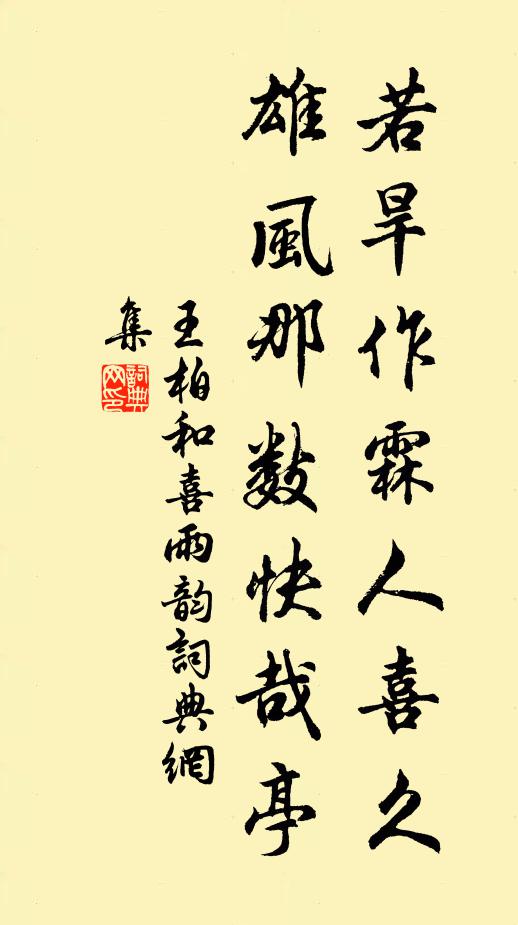 若旱作霖人喜久
雄風那数快哉亭
王柏和喜雨韵詞典網
集
詞典网印